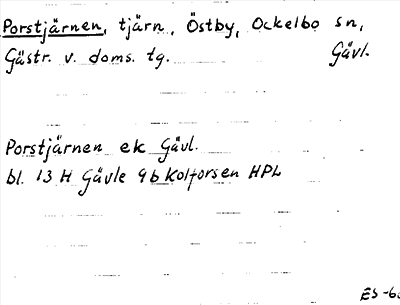 Porstjärnen, tjärn, Östby, Ockelbo sn,
Gästr. v. doms. tg. Gävl.
Porstjärnen ek Gävl.
bl. 13 H Gävle 9b Kolforsen HPL
ES-6